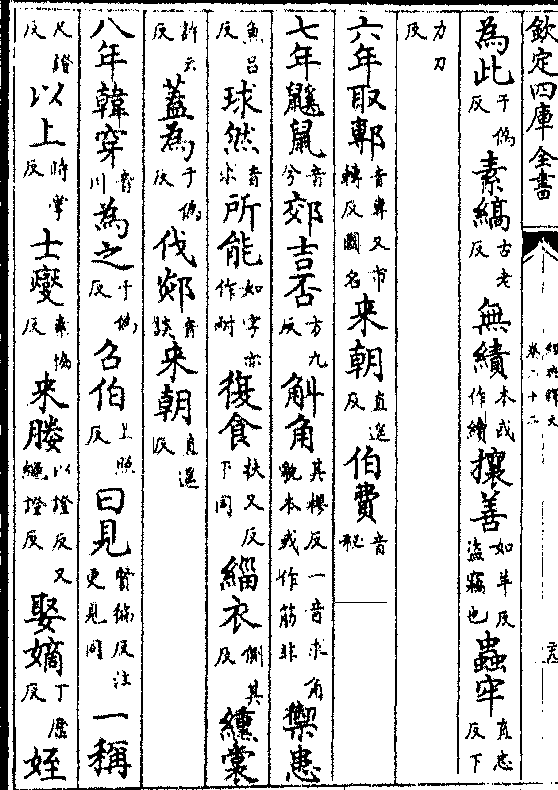 欽定四庫全書
經典釋文
卷二十二
為此于偽反素縞古老反無績本或作續攘善如羊反盜竊也蟲牢直忠反下
力刀反
六年取鄟音專又市轉反國名来朝直遥反伯費音秘
七年鼷鼠音兮郊吉否方九反斛角其樛反一音求角貌本或作筋非禦患
魚呂反球然音求所能如字亦作耐復食扶又反下同緇衣側其反纁裳
許云反蓋為于偽反伐郯音談来朝直遥反
八年韓穿音川為之于偽反召伯上照反曰見賢徧反注更見同一稱
尺證反以上時掌反士燮素協反来媵以證反又繩證反娶嫡丁歷反姪